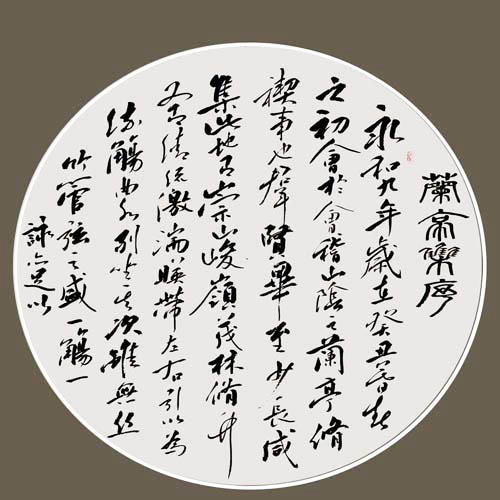 蘭亭集序
永和九年歲在癸丑暮春
之初會於會稽山陰之蘭亭脩
禊事也群賢畢至少長咸
集此地有崇山峻嶺茂林脩竹
又有清流激湍映帶左右引以為
流觴曲水列坐其次雖無絲
竹管弦之盛一觴一
詠亦足以